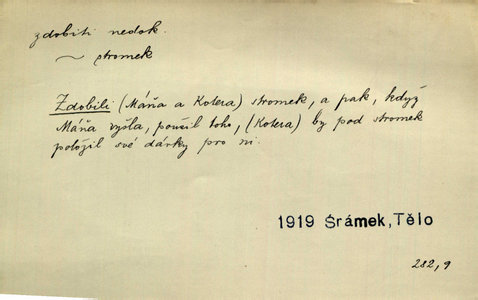 zdobiti nedok.
~ stromek
Zdobili (Máňa a Kotera) stromek, a pak, když
Máňa vyšla, použil toho, (Kotera) by pod stromek
položil své dárky pro ni.
1919 Šrámek, Tělo
282,9